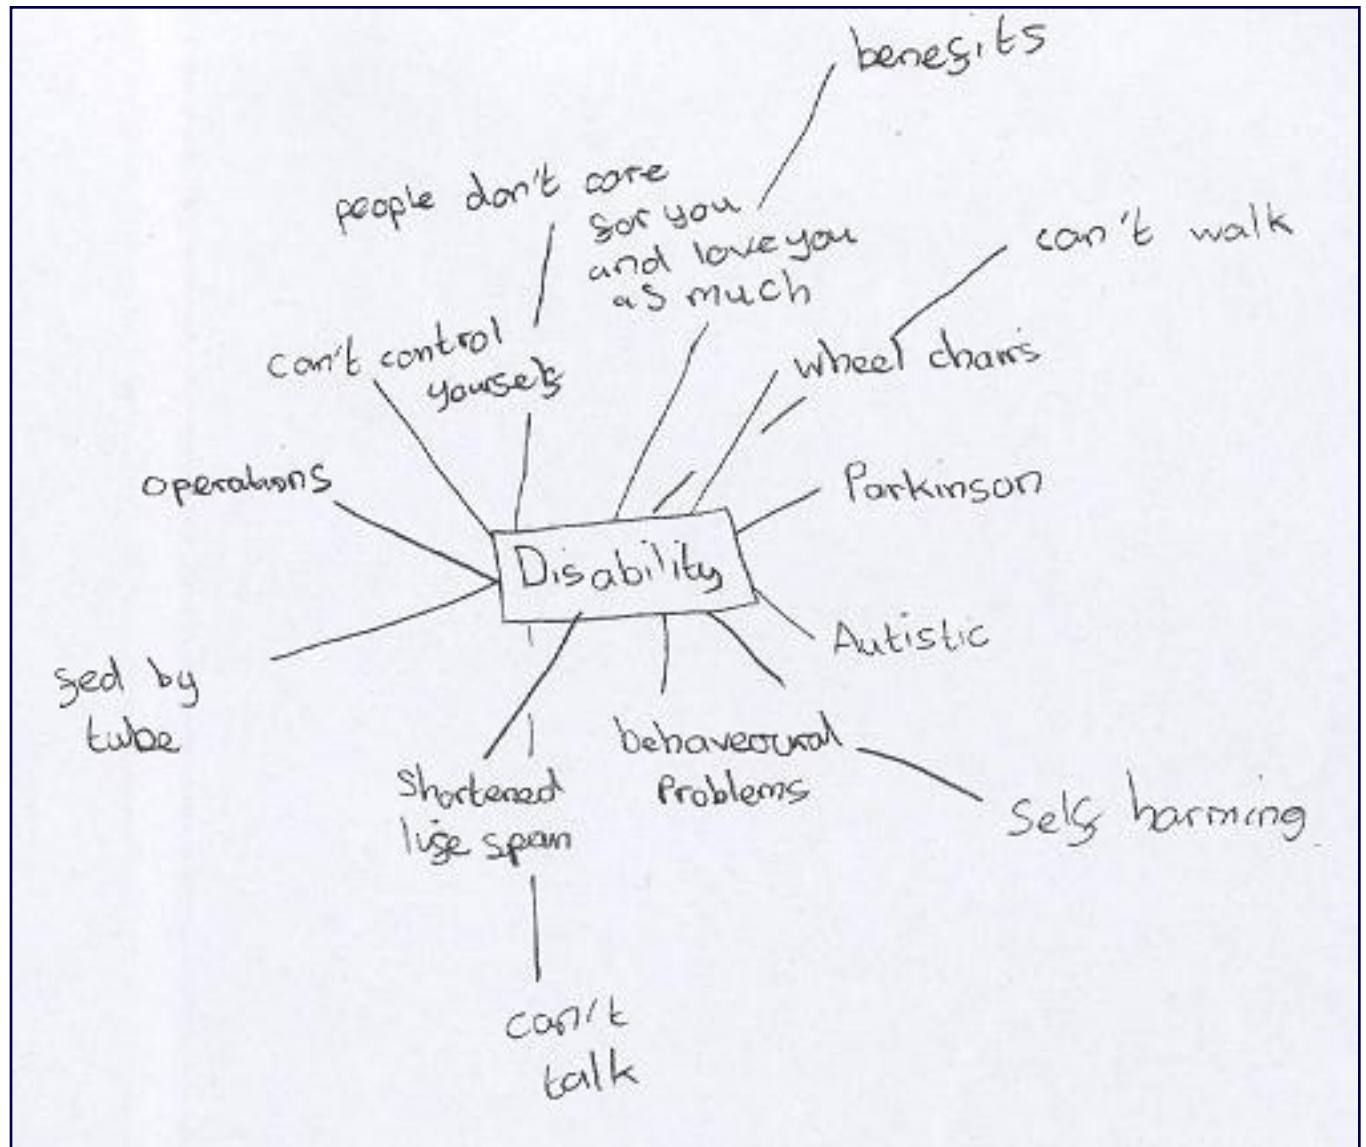 benefits
people don't care
for you
and love you
as much
can't walk
can't control
yourself
wheel chairs
operations
Parkinson
Disability
Autistic
fed by
tube
behaveoural
Problems
Shortened
life span
self harming
can't
talk